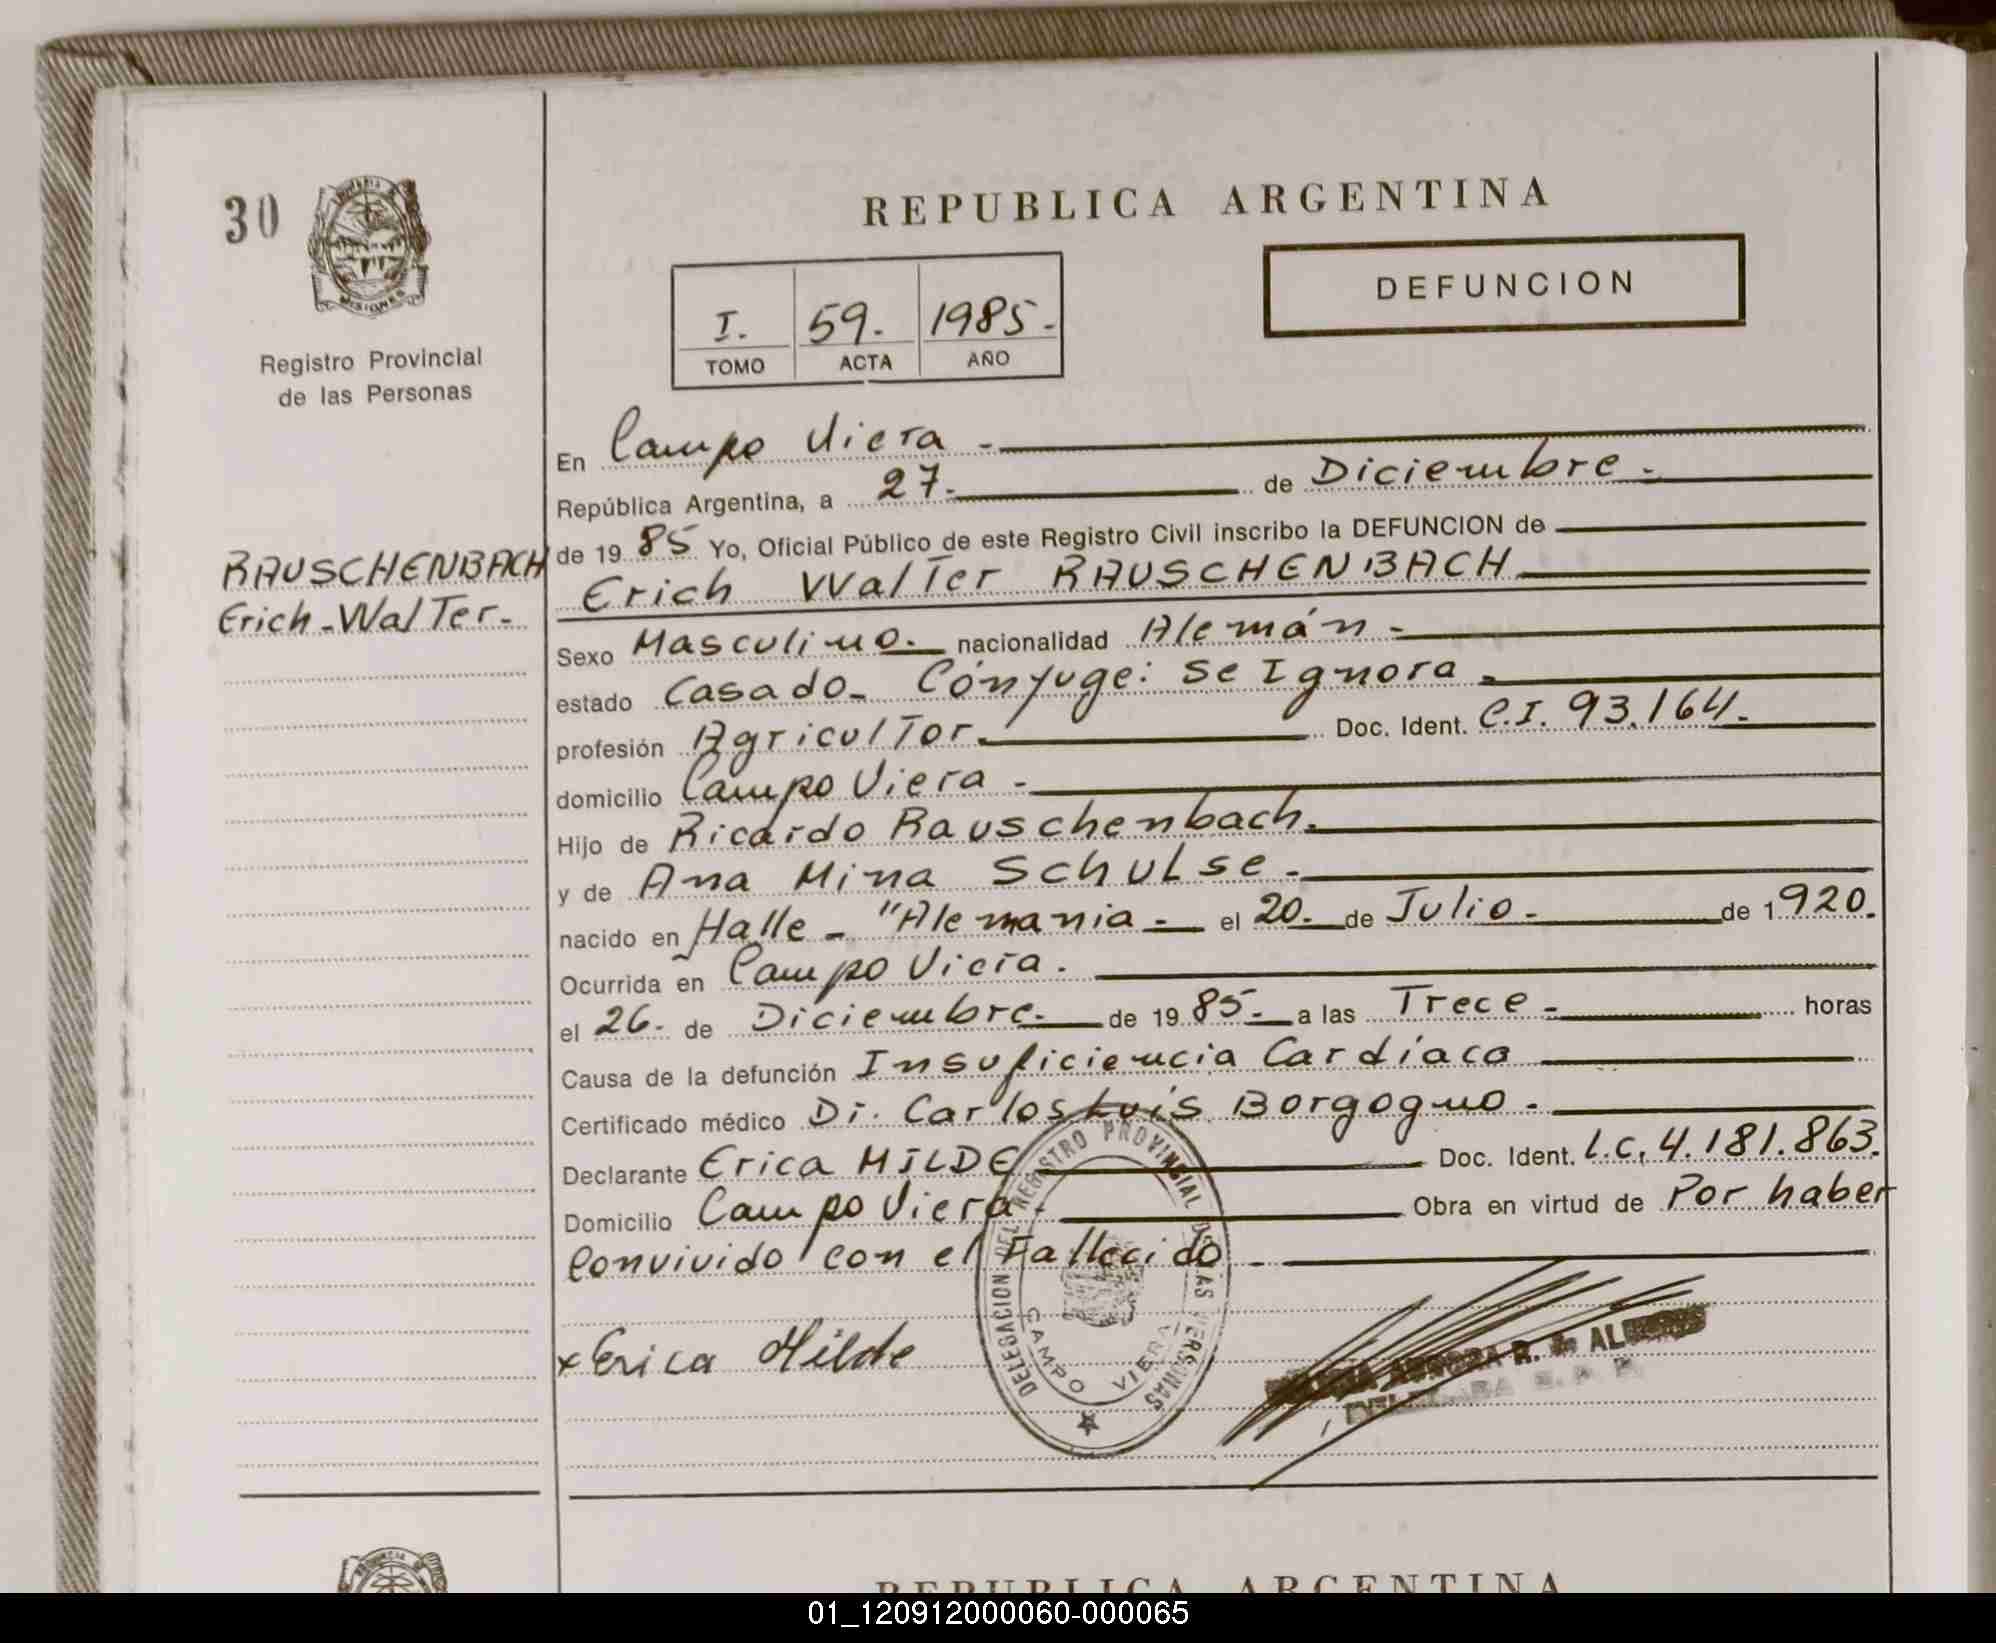 30
MISIONES
Registro Provincial
de las Personas
RAUSCHENBACH
Erich-Walter.-
REPUBLICA ARGENTINA
DEFUNCION
I. 59. 1985.-
TOMO ACTA AÑO
En Campo Viera -
República Argentina, a 27.- de Diciembre.-
de 1985 Yo, Oficial Público de este Registro Civil inscribo la DEFUNCION de
Erich Walter RAUSCHENBACH
Sexo Masculino.- nacionalidad Alemán -
estado Casado- Cónyuge: Se Ignora.-
profesión Agricultor.- Doc. Ident. C.I. 93.164.-
domicilio Campo Viera -
Hijo de Ricardo Rauschenbach.-
y de Ana Mina Schulse.-
nacido en Halle - "Alemania - el 20.- de Julio.- de 1920.
Ocurrida en Campo Viera.
el 26. de Diciembre.- de 1985.- a las Trece.- horas
Causa de la defunción Insuficiencia Cardíaca
Certificado médico Dr. Carlos Luis Borgogno.-
Declarante Erica MILDE Doc. Ident. L.C. 4.181.863.
Domicilio Campo Viera.- Obra en virtud de Por haber
Convivido con el Fallecido.-
x Erica Milde
DELEGACION DEL REGISTRO PROVINCIAL DE LAS PERSONAS
CAMPO VIERA
REPUBLICA ARGENTINA
01_120912000060-000065